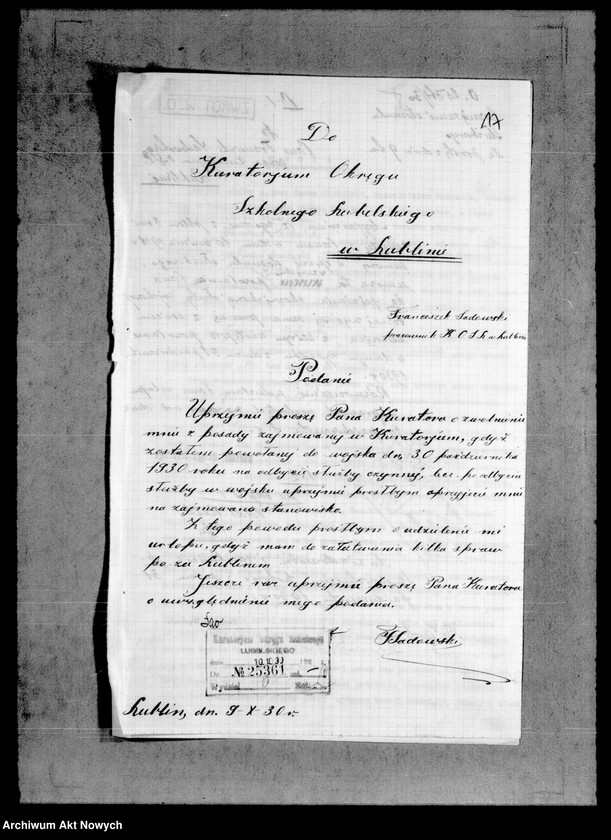 17
Do
Kuratorjum Okręgu
Szkolnego Lubelskiego
w Lublinie
Franciszek Sadowski
pracownik K O S L w Lublinie
Podanie
Uprzejmie proszę Pana Kuratora o zwolnienie
mnie z posady zajmowanej w Kuratorjum, gdyż
zostałem powołany do wojska dn. 30 października
1930 roku na odbycie służby czynnej, lecz po odbyciu
służby w wojsku uprzejmie prosiłbym o przyjęcie mnie
na zajmowane stanowisko.
Z tego powodu prosiłbym o udzielenie mi
urlopu, gdyż mam do załatwienia kilka spraw
po za Lublinem
Jeszcze raz uprzejmie proszę Pana Kuratora
o uwzględnienie mego podania.
FSadowski
Kuratorjum Okręgu Szkolnego
LUBELSKIEGO
dnia 10.X.30
Do № 25361 zał.
Wydział
Lublin, dn. 9-X-30 r.
Archiwum Akt Nowych